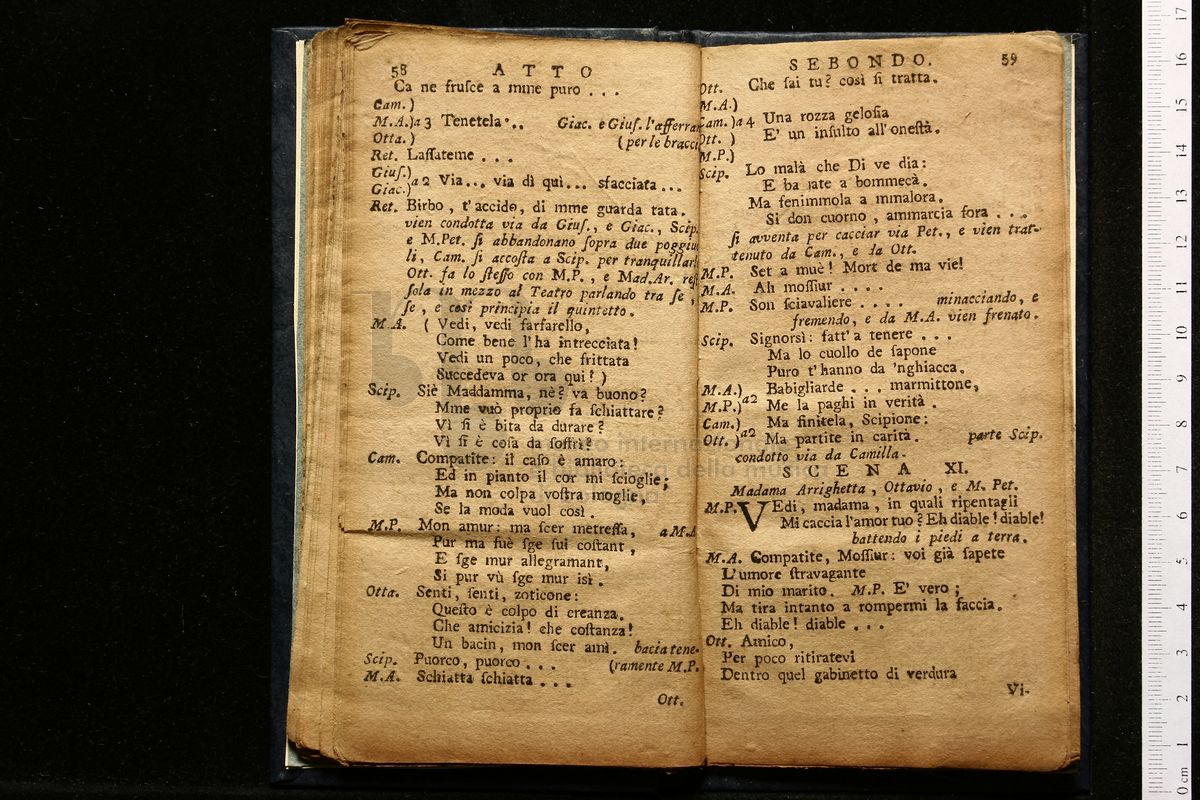 58 ATTO
Ca ne fruſce a mme puro . . .
Cam.)
M.A.)a 3 Tenetela . . Giac. e Giuſ. l'afferran
Otta.) (per le bracci
Ret. Laſſateme . . .
Giuſ.)
Giac.)a 2 Via... via dì quì... sfacciata ...
Ret. Birbo, t'accido, di mme guarda tata.
vien condotta via da Giuſ., e Giac., Scip.
e M.Pet. ſi abbandonano ſopra due poggiuo
li, Cam. ſi accoſta a Scip. per tranquillarl
Ott. fa lo ſteſſo con M.P., e Mad.Ar. reſt
ſola in mezzo al Teatro parlando tra ſe,
ſe, e così principia il quintetto.
M.A. ( Vedi, vedi farfarello,
Come bene l'ha intrecciata!
Vedi un poco, che frittata
Succedeva or ora qui! )
Scip. Siè Maddamma, nè? va buono?
Mme vuò proprio fa ſchiattare?
Vì ſi è bita da durare?
Vì ſi è coſa da ſoffrì?
Cam. Compatite: il caſo è amaro:
Ed in pianto il cor mi ſcioglie;
Ma non colpa voſtra moglie,
Se la moda vuol così.
M.P. Mon amur: ma ſcer metreſſa, a M.A.
Pur ma fuè ſge ſui coſtant,
E ſge mur allegramant,
Si pur vù ſge mur isì.
Otta. Senti, ſenti, zoticone:
Queſto è colpo di creanza.
Che amicizia! che coſtanza!
Un bacin, mon ſcer amì. bacia tene-
Scip. Puorco, puorco . . . (ramente M.P.
M.A. Schiatta ſchiatta . . .
Ott.
SEBONDO. 59
Ott. Che fai tu? così ſi tratta.
M.A.)
Cam.)a 4 Una rozza geloſia
Ott. ) E' un inſulto all'oneſtà.
M.P.)
Scip. Lo malà che Di ve dia:
E ba jate a bommecà.
Ma fenimmola a mmalora.
Si don cuorno, ammarcia fora . . .
ſi avventa per cacciar via Pet., e vien trat-
tenuto da Cam., e la Ott.
M.P. Set a muè! Mort de ma vie!
M.A. Ah moſſiur . . . .
M.P. Son ſciavaliere . . . . minacciando, e
fremendo, e da M.A. vien frenato.
Scip. Signorsì: fatt'a tenere . . .
Ma lo cuollo de ſapone
Puro t'hanno da 'nghiacca.
M.A.) Babigliarde . . . marmittone,
M.P.)a2 Me la paghi in verità.
Cam.) Ma finitela, Scipione:
Ott. )a2 Ma partite in carità. parte Scip.
condotto via da Camilla.
SCENA XI.
Madama Arrighetta, Ottavio, e M. Pet.
M.P. VEdi, madama, in quali ripentagli
Mi caccia l'amor tuo? Eh diable! diable!
battendo i piedi a terra.
M.A. Compatite, Moſſiur: voi già ſapete
L'umore ſtravagante
Di mio marito. M.P. E' vero;
Ma tira intanto a rompermi la faccia.
Eh diable! diable . . .
Ott. Amico,
Per poco ritiratevi
Dentro quel gabinetto di verdura
Vi-